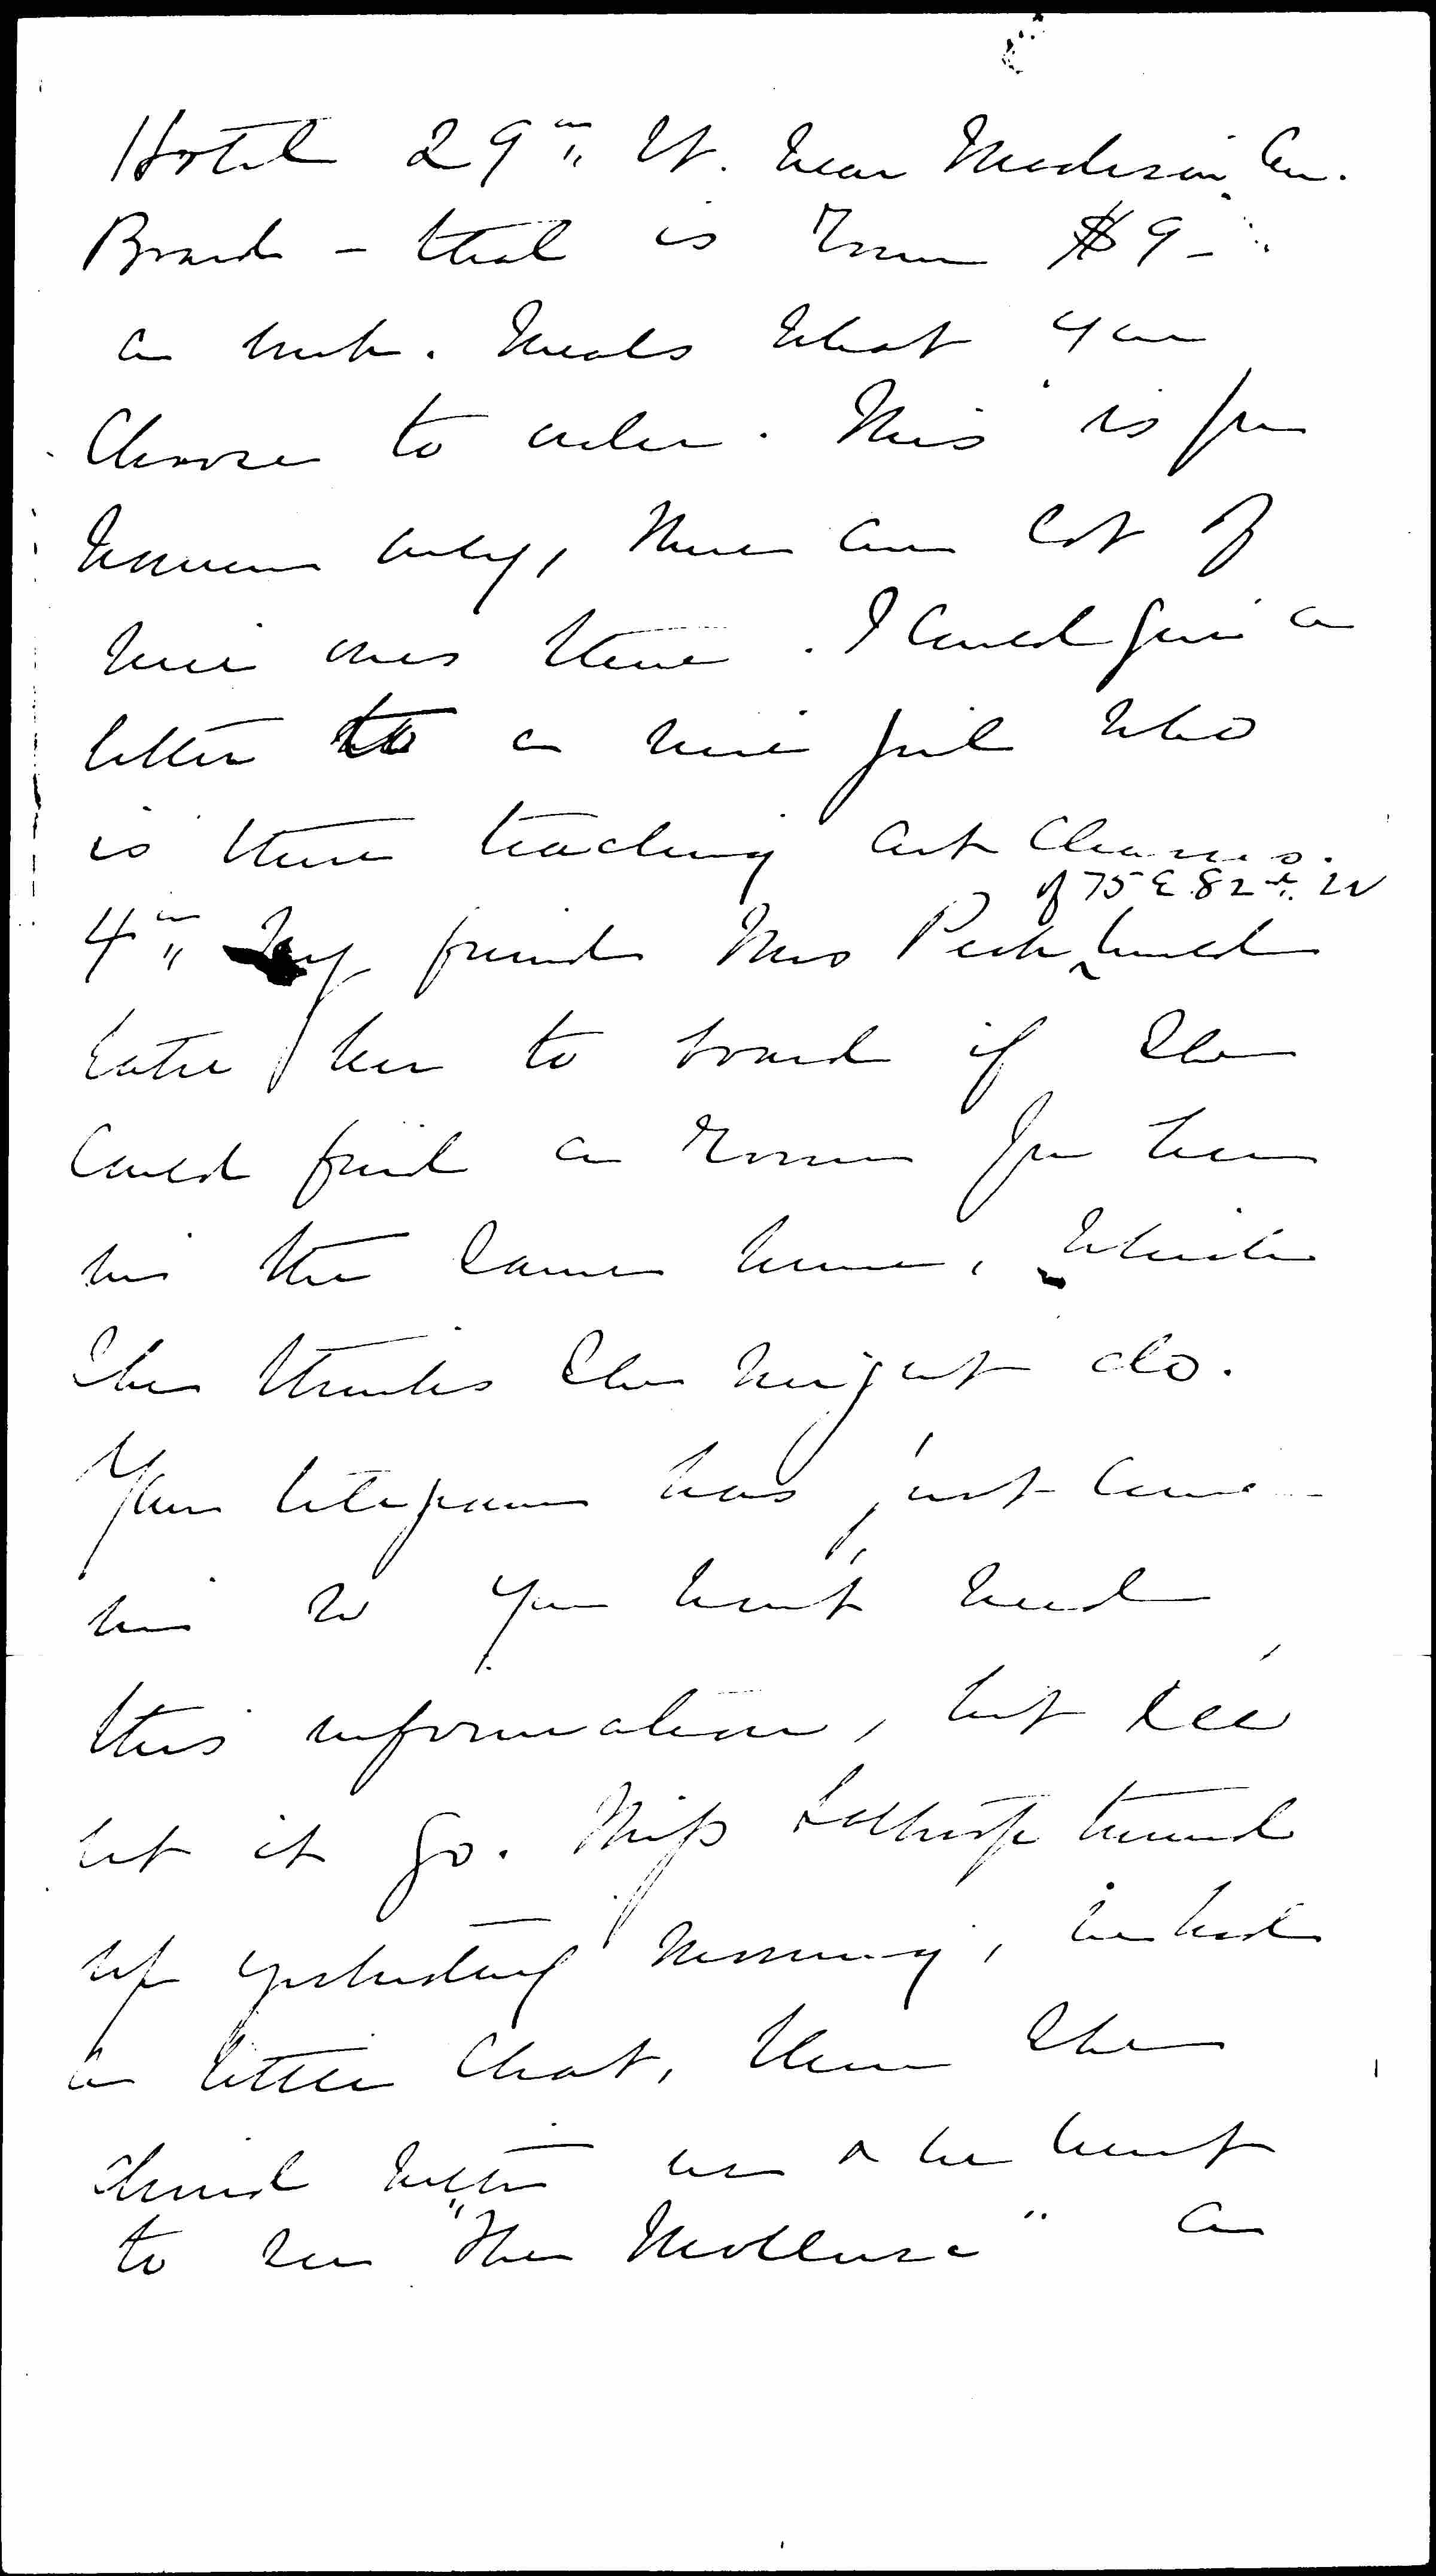 Hotel 29th St. near Madison Av.
Board - that is room $9-
a week. Meals what you
choose to order. This is for
women only, there are lot of
nice ones there. I could give a
letter to a nice girl who
is there teaching art classes.
of 75 E. 82nd St
4th My friend Mrs Peck would
take her to board if she
could find a room for her
in the same house, which
she thinks she might do.
Your telegram has just come
in so you won't need
this information, but I'll
let it go. Miss Lothrop turned
up yesterday morning, we had
a little chat, then she
dined with us & we went
to see "The Mollusc" a